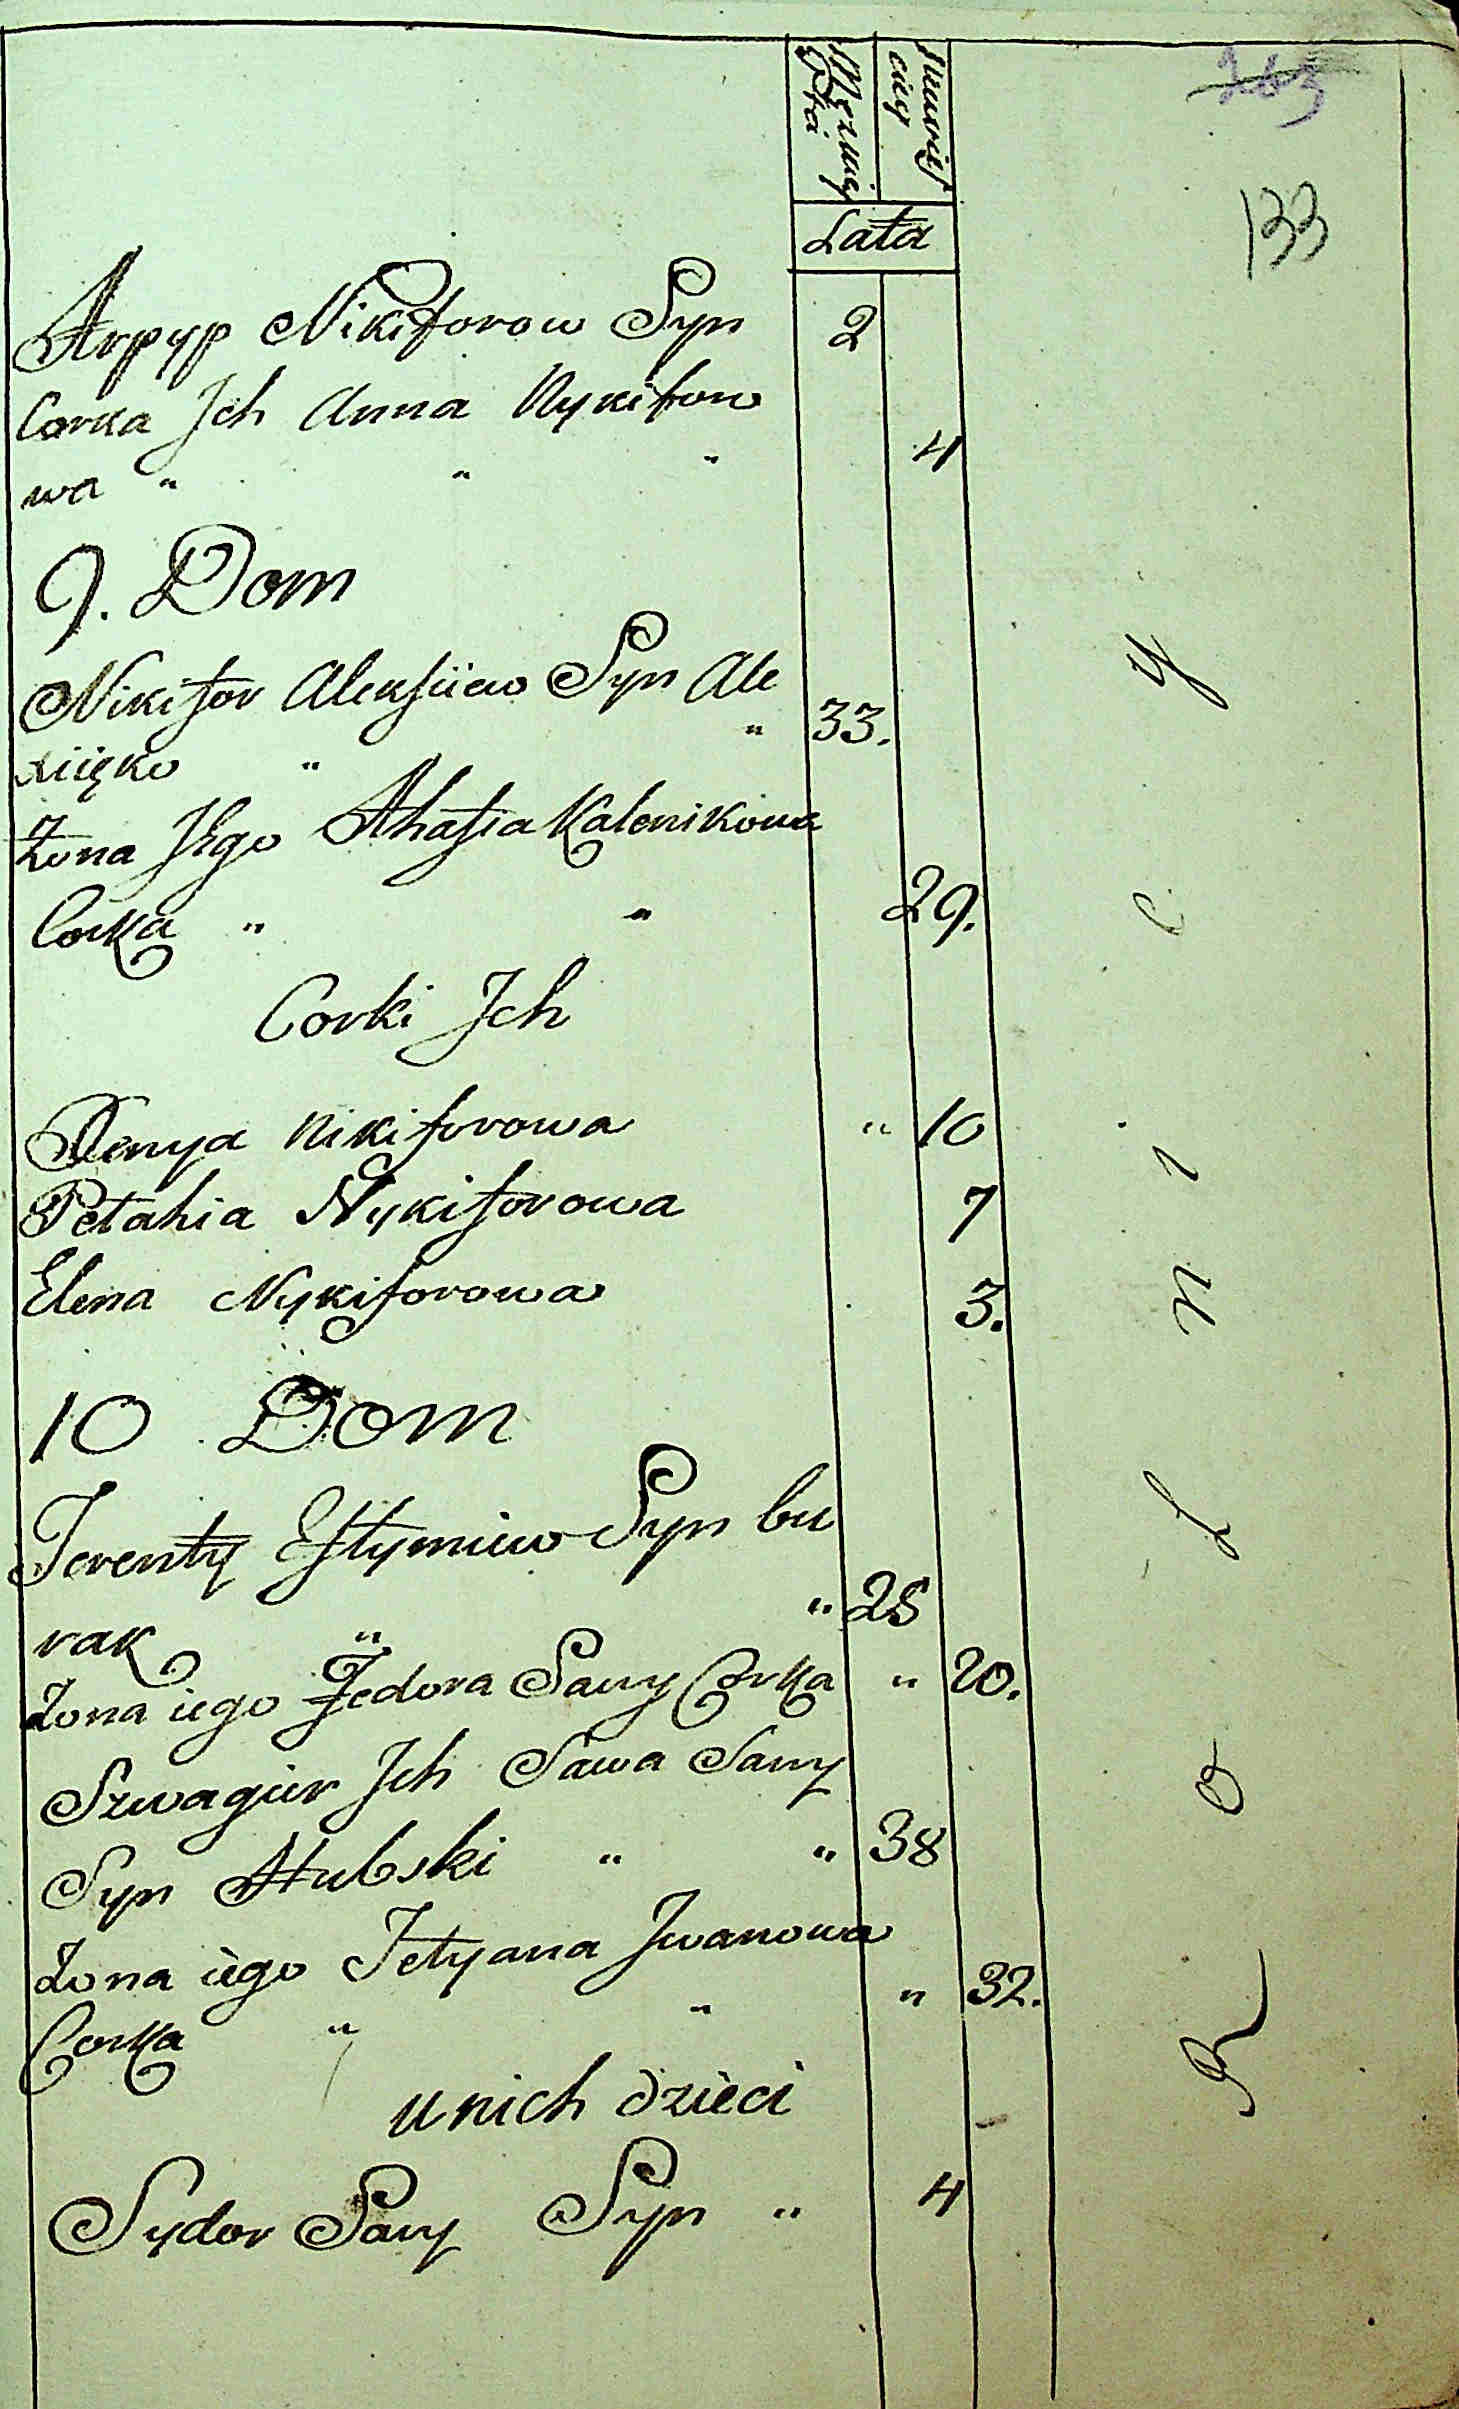 Męzwiej Płci
263
133
Lata
Arpyp Nikiforow Syn 2
Corka Ich Anna Nykiforo
wa " " " 4
9. Dom
Nikifor Aleksiiew Syn Ale
xiięko " " 33.
Żona Jego Ahafia Kalenikowa
Corka " " 29.
Corki Ich
Xenya Nikiforowa " 10
Petahia Nykiforowa 7
Elena Nykiforowa 3.
10 Dom
Terenty Eftymiiw Syn bu
rak " " 28
Żona iego Fedora Sawy Corka " 20.
Szwagier Ich Sawa Sawy
Syn Hubski " " 38
Żona iego Tetyana Iwanowa
Corka " " " 32.
u nich dzieci
Sydor Sawy Syn " 4
R o l n i c y